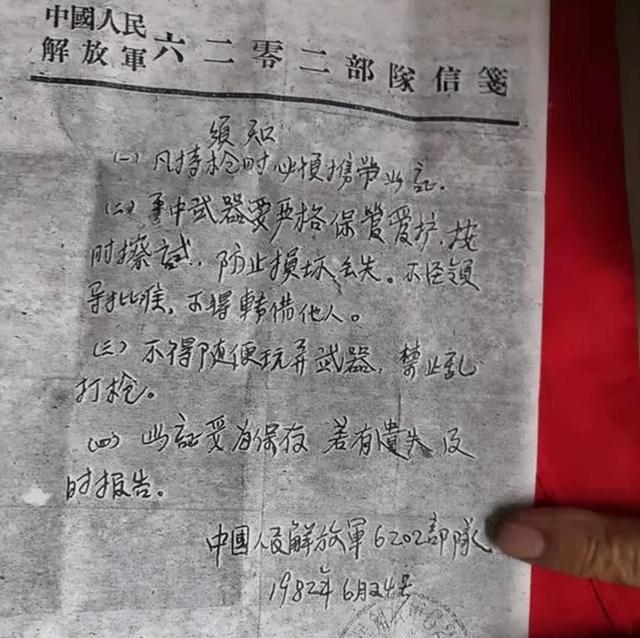 中國人民
解放軍六二零二部隊信箋
須知
(一) 凡持枪时必須携带此証.
(二) 手中武器要严格保管爱护. 按
时擦試. 防止损坏丢失。不经領
导批准, 不得轉借他人。
(三) 不得随便玩弄武器. 禁止乱
打枪。
(四) 此証要好保存 若有遺失 及
时报告。
中國人民解放軍6202部隊
1982年6月24号